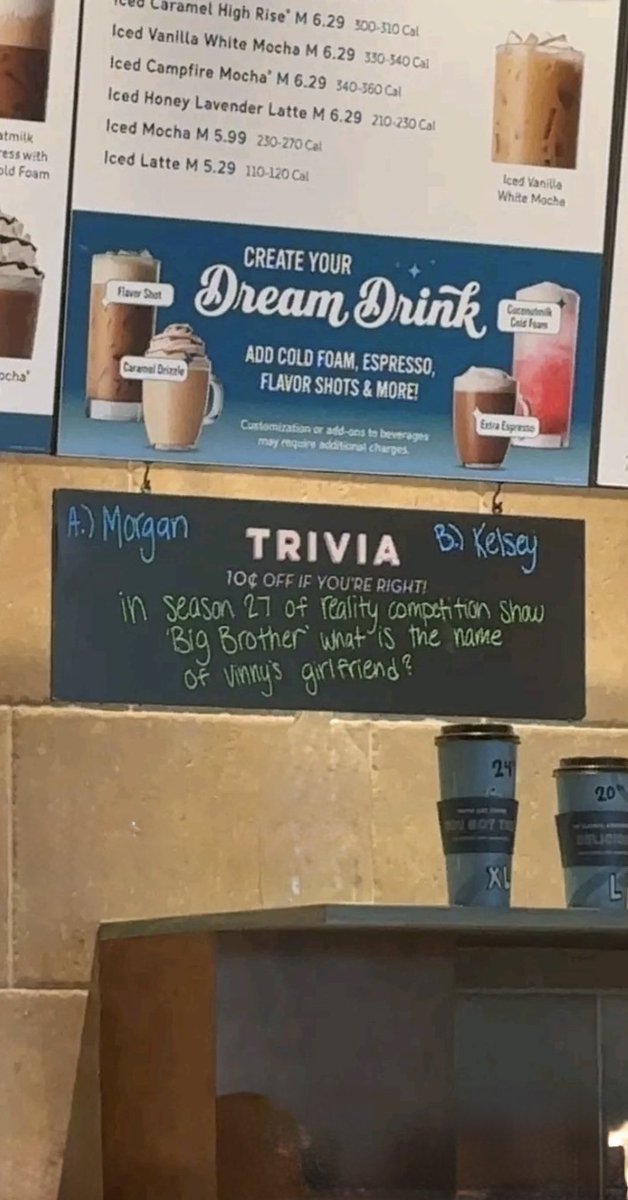 Iced Caramel High Rise® M 6.29 300-310 Cal
Iced Vanilla White Mocha M 6.29 330-340 Cal
Iced Campfire Mocha® M 6.29 340-360 Cal
Iced Honey Lavender Latte M 6.29 210-230 Cal
Iced Mocha M 5.99 230-270 Cal
Iced Latte M 5.29 110-120 Cal
Iced Vanilla
White Mocha
CREATE YOUR
Dream Drink
Flavor Shot
Caramel Drizzle
Coconutmilk
Cold Foam
Extra Espresso
ADD COLD FOAM, ESPRESSO,
FLAVOR SHOTS & MORE!
Customization or add-ons to beverages
may require additional charges.
A.) Morgan
B.) Kelsey
TRIVIA
10¢ OFF IF YOU'RE RIGHT!
in season 27 of reality competition show
'Big Brother' what is the name
of Vinny's girlfriend?
24
XL
20
L